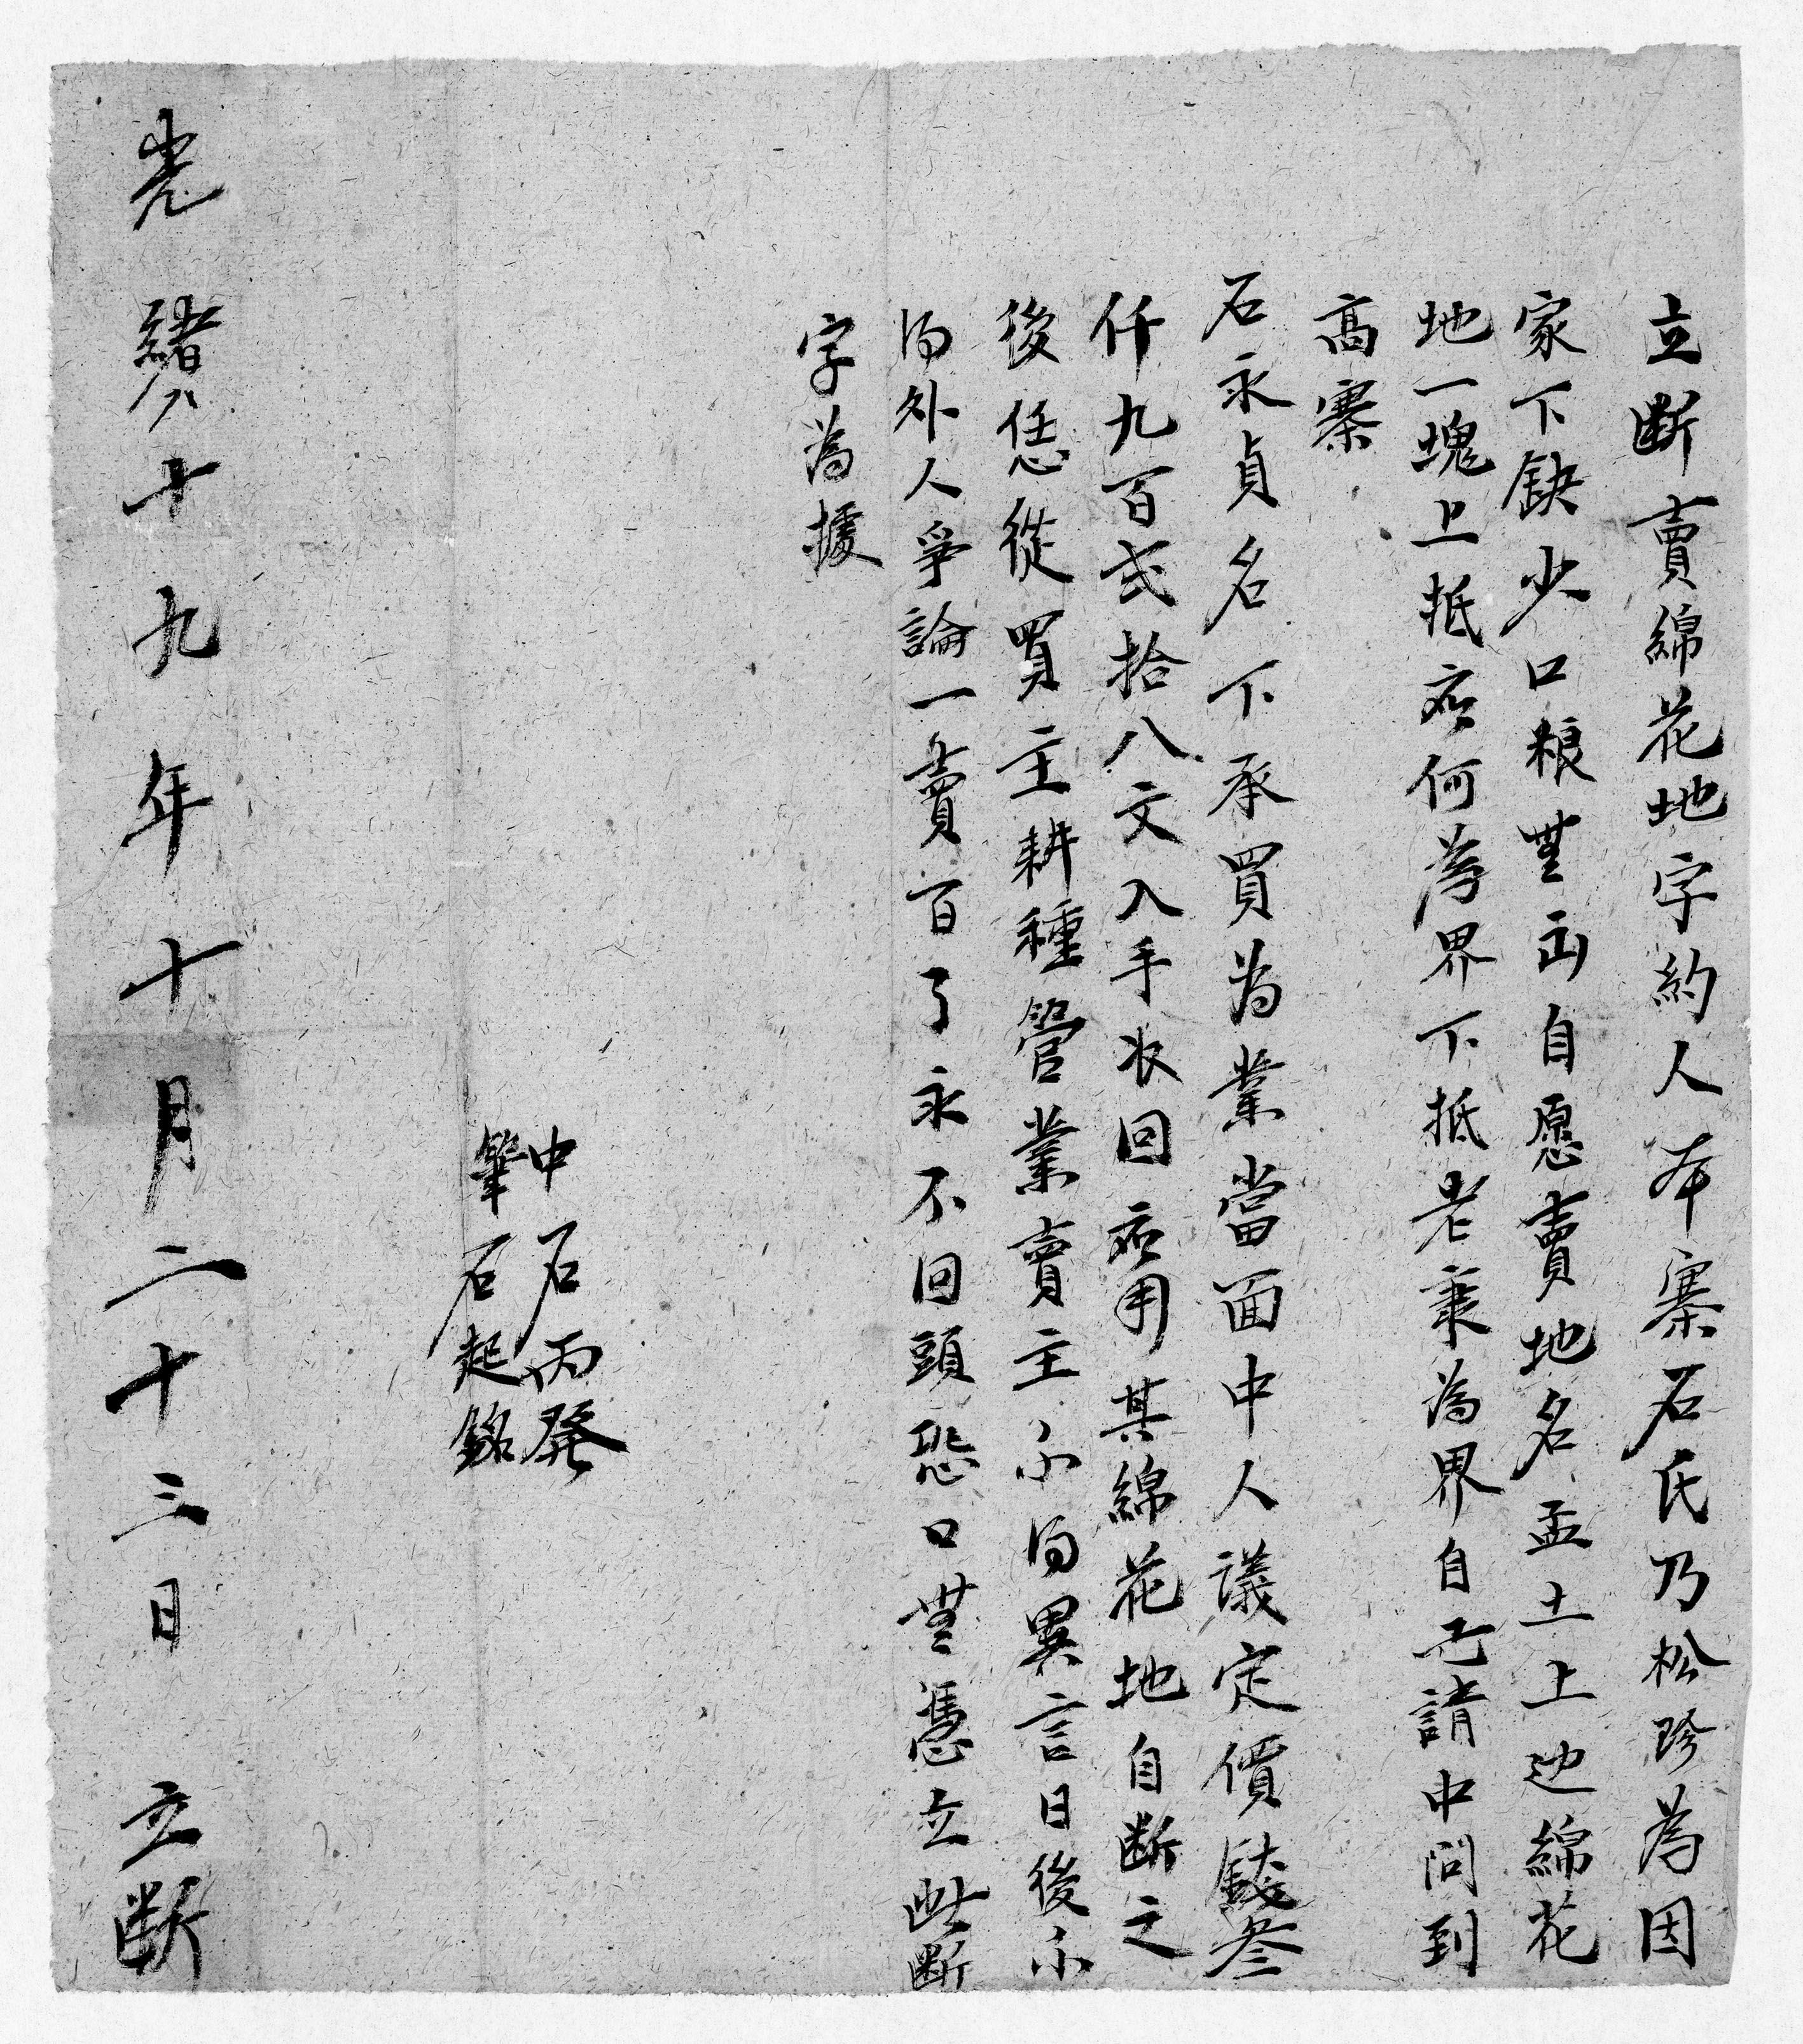 立断賣綿花地字約人本寨石氏乃松珍為因
家下缺少口粮無出自愿賣地名孟土上边綿花
地一塊上抵應何為界下抵老秉為界自己請中問到
高寨
石永貞名下承買為業當面中人議定價錢叁
仟九百弍拾八文入手收回應用其綿花地自断之
後恁從買主耕種管業賣主不得異言日後不
得外人爭論一賣百了永不回頭恐口無憑立此断
字為據
中石丙發
筆石起銘
光緒十九年十月二十三日立断